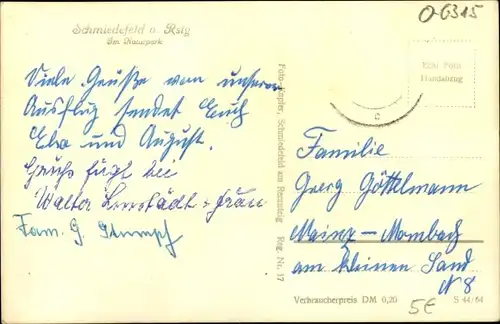 O-6315
Schmiedefeld a. Rstg
Im Rennpark
Echt Foto
Handabzug
Viele Grüße von unserem
Ausflug sendet Euch
Elsa und August.
Gruß fügt bei
Walter
Frau
Fam. G. Stumpf
Schmiedefeld am Rennsteig Reg. Nr. 17
Familie
Georg Göttelmann
Mainz-Mombach
am kleinen Sand
N 8
Verbraucherpreis DM 0,20
5€
S 44/64